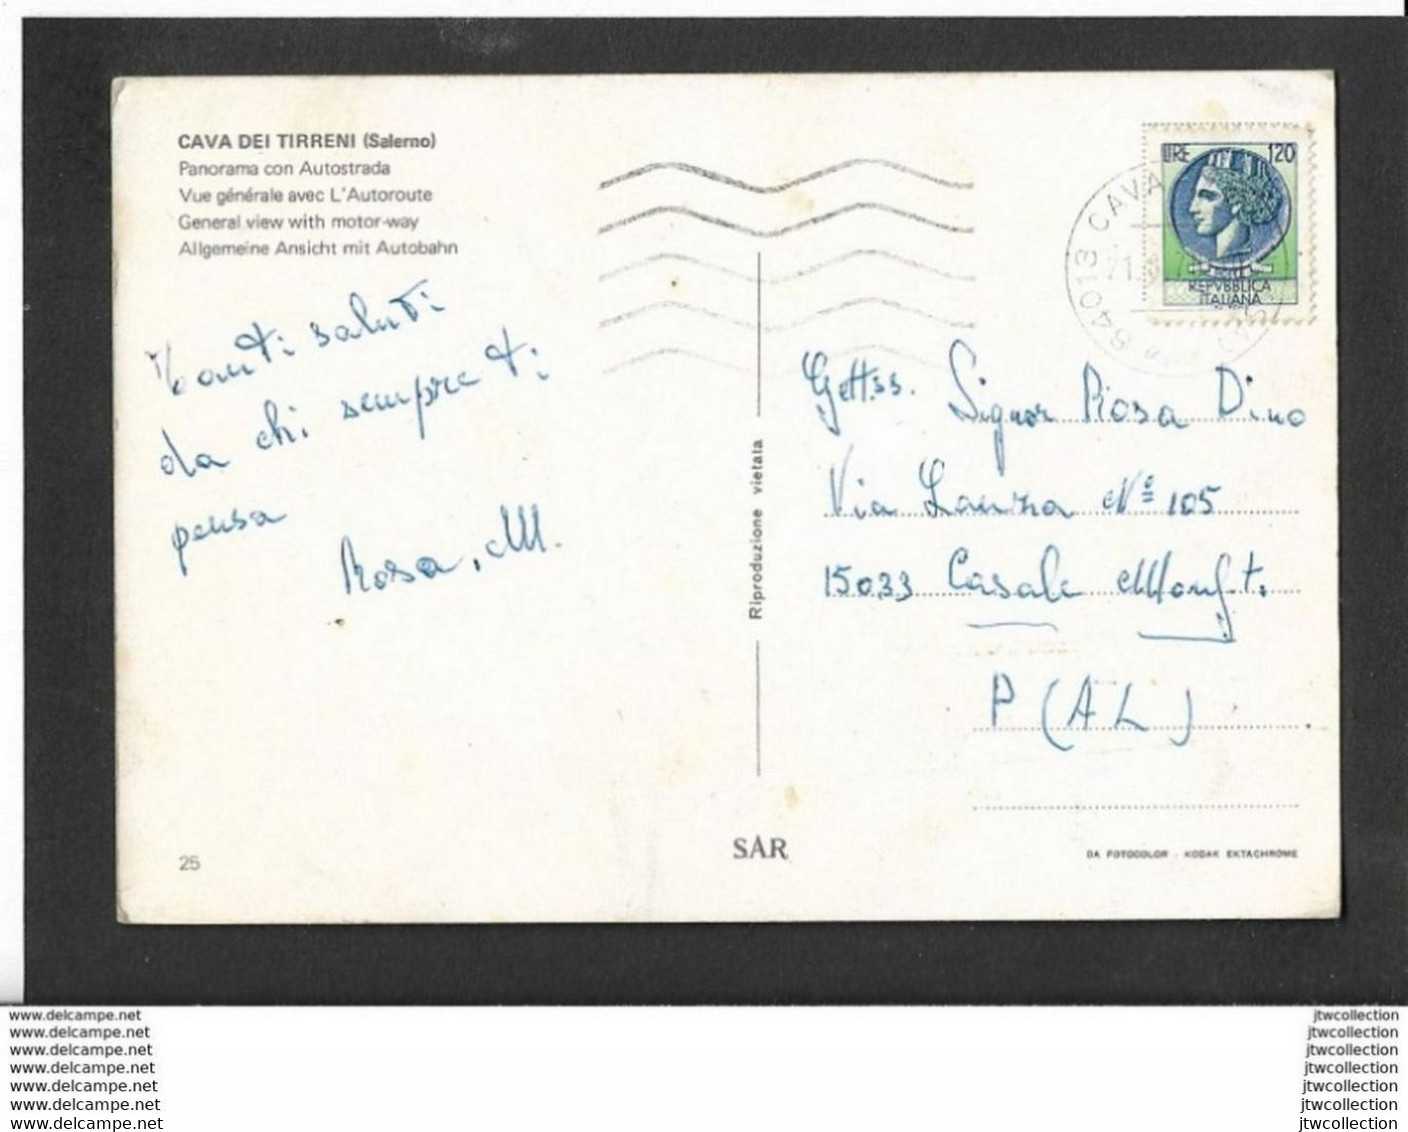 CAVA DEI TIRRENI (Salerno)
Panorama con Autostrada
Vue générale avec L'Autoroute
General view with motor-way
Allgemeine Ansicht mit Autobahn
Tanti saluti
da chi sempre ti
pensa
Rosa, M.
25
Riproduzione vietata
SAR
LIRE 120
REPVBBLICA
ITALIANA
84013 CAVA
Gett.ss. Signor Rosa Dino
Via Lanza N° 105
15033 Casale Monf t.
P (AL)
DA FOTOCOLOR - KODAK EKTACHROME
www.delcampe.net
www.delcampe.net
www.delcampe.net
www.delcampe.net
www.delcampe.net
www.delcampe.net
www.delcampe.net
jtwcollection
jtwcollection
jtwcollection
jtwcollection
jtwcollection
jtwcollection
jtwcollection